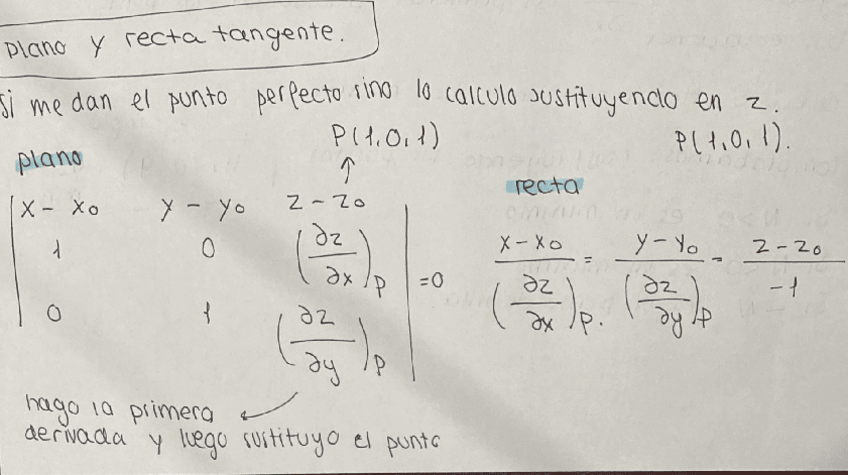 Plano y recta tangente.
si me dan el punto perfecto sino lo calculo sustituyendo en z.
P(1,0,1)
P(1,0,1).
plano
recta
x - x₀ y - y₀ z - z₀
1 0 (∂z/∂x)p
0 1 (∂z/∂y)p
=0
(x-x₀)/(∂z/∂x)p. = (y-y₀)/(∂z/∂y)p = (z-z₀)/-1
hago la primera
derivada y luego sustituyo el punto